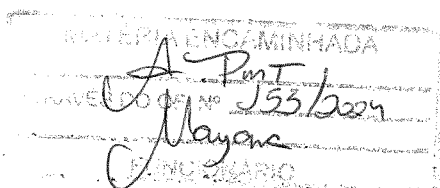 MATERIA ENCAMINHADA
A PMT
ATRAVES DO OF. Nº 153/2004
Mayane
FUNCIONARIO